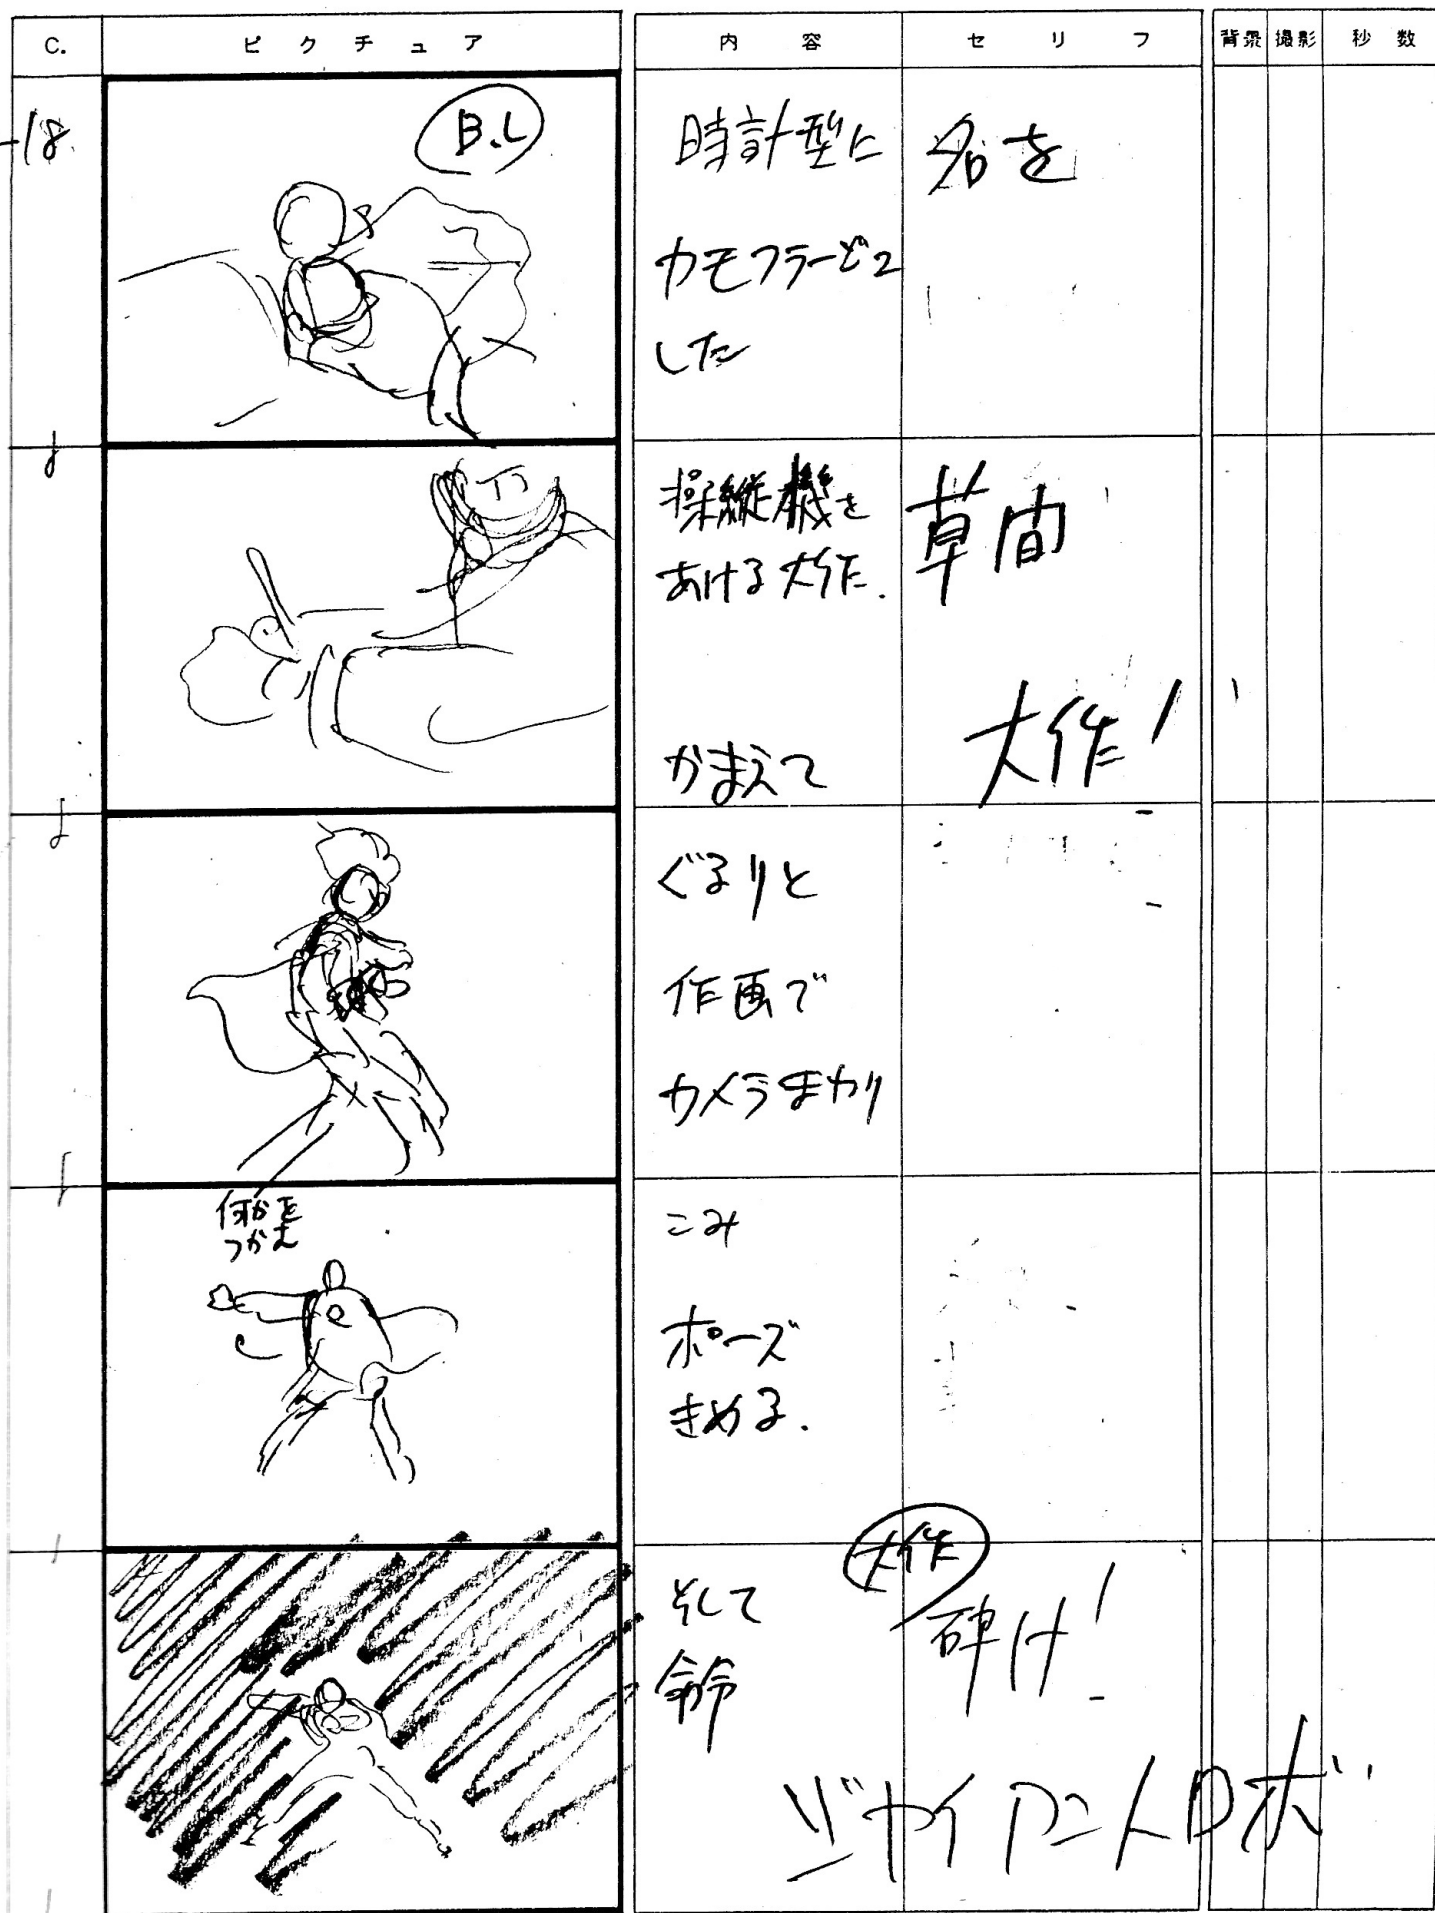 C. ピクチュア 内容 セリフ 背景 撮影 秒数
18
B.L
時計型に
カモフラージュ
した
名を
操縦機を
あける大作.
かまえて
草間
大作!
ぐるりと
作画で
カメラまわり
何かを
つかえ
こみ
ポーズ
きめる.
そして
命令
大作
砕け!
ジャイアントロボ